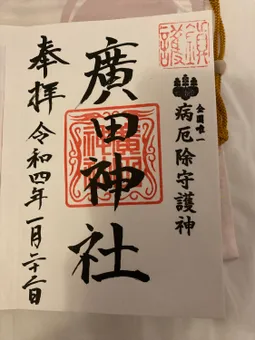 全国唯一
病厄除守護神
廣田神社
奉拝 令和四年一月二十二日